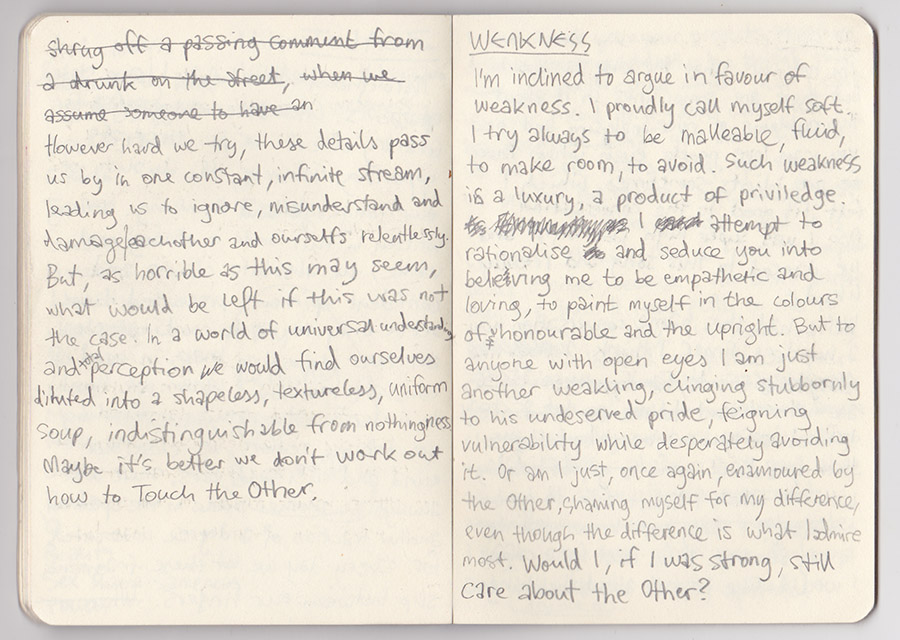 shrug off a passing comment from
a drunk on the street, when we
assume someone to have an
However hard we try, these details pass
us by in one constant, infinite stream,
leading us to ignore, misunderstand and
damage eachother and ourselfs relentlessly.
But, as horrible as this may seem,
what would be left if this was not
the case. In a world of universal understanding
and total perception we would find ourselves
diluted into a shapeless, textureless, uniform
soup, indistinguishable from nothingness.
Maybe it's better we don't work out
how to Touch the Other.
WEAKNESS
I'm inclined to argue in favour of
weakness. I proudly call myself soft.
I try always to be malleable, fluid,
to make room, to avoid. Such weakness
is a luxury, a product of priviledge.
I attempt to
rationalise and seduce you into
believing me to be empathetic and
loving, to paint myself in the colours
of honourable and the upright. But to
anyone with open eyes I am just
another weakling, clinging stubbornly
to his undeserved pride, feigning
vulnerability while desperately avoiding
it. Or am I just, once again, enamoured by
the Other, shaming myself for my difference,
even though the difference is what I admire
most. Would I, if I was strong, still
care about the Other?